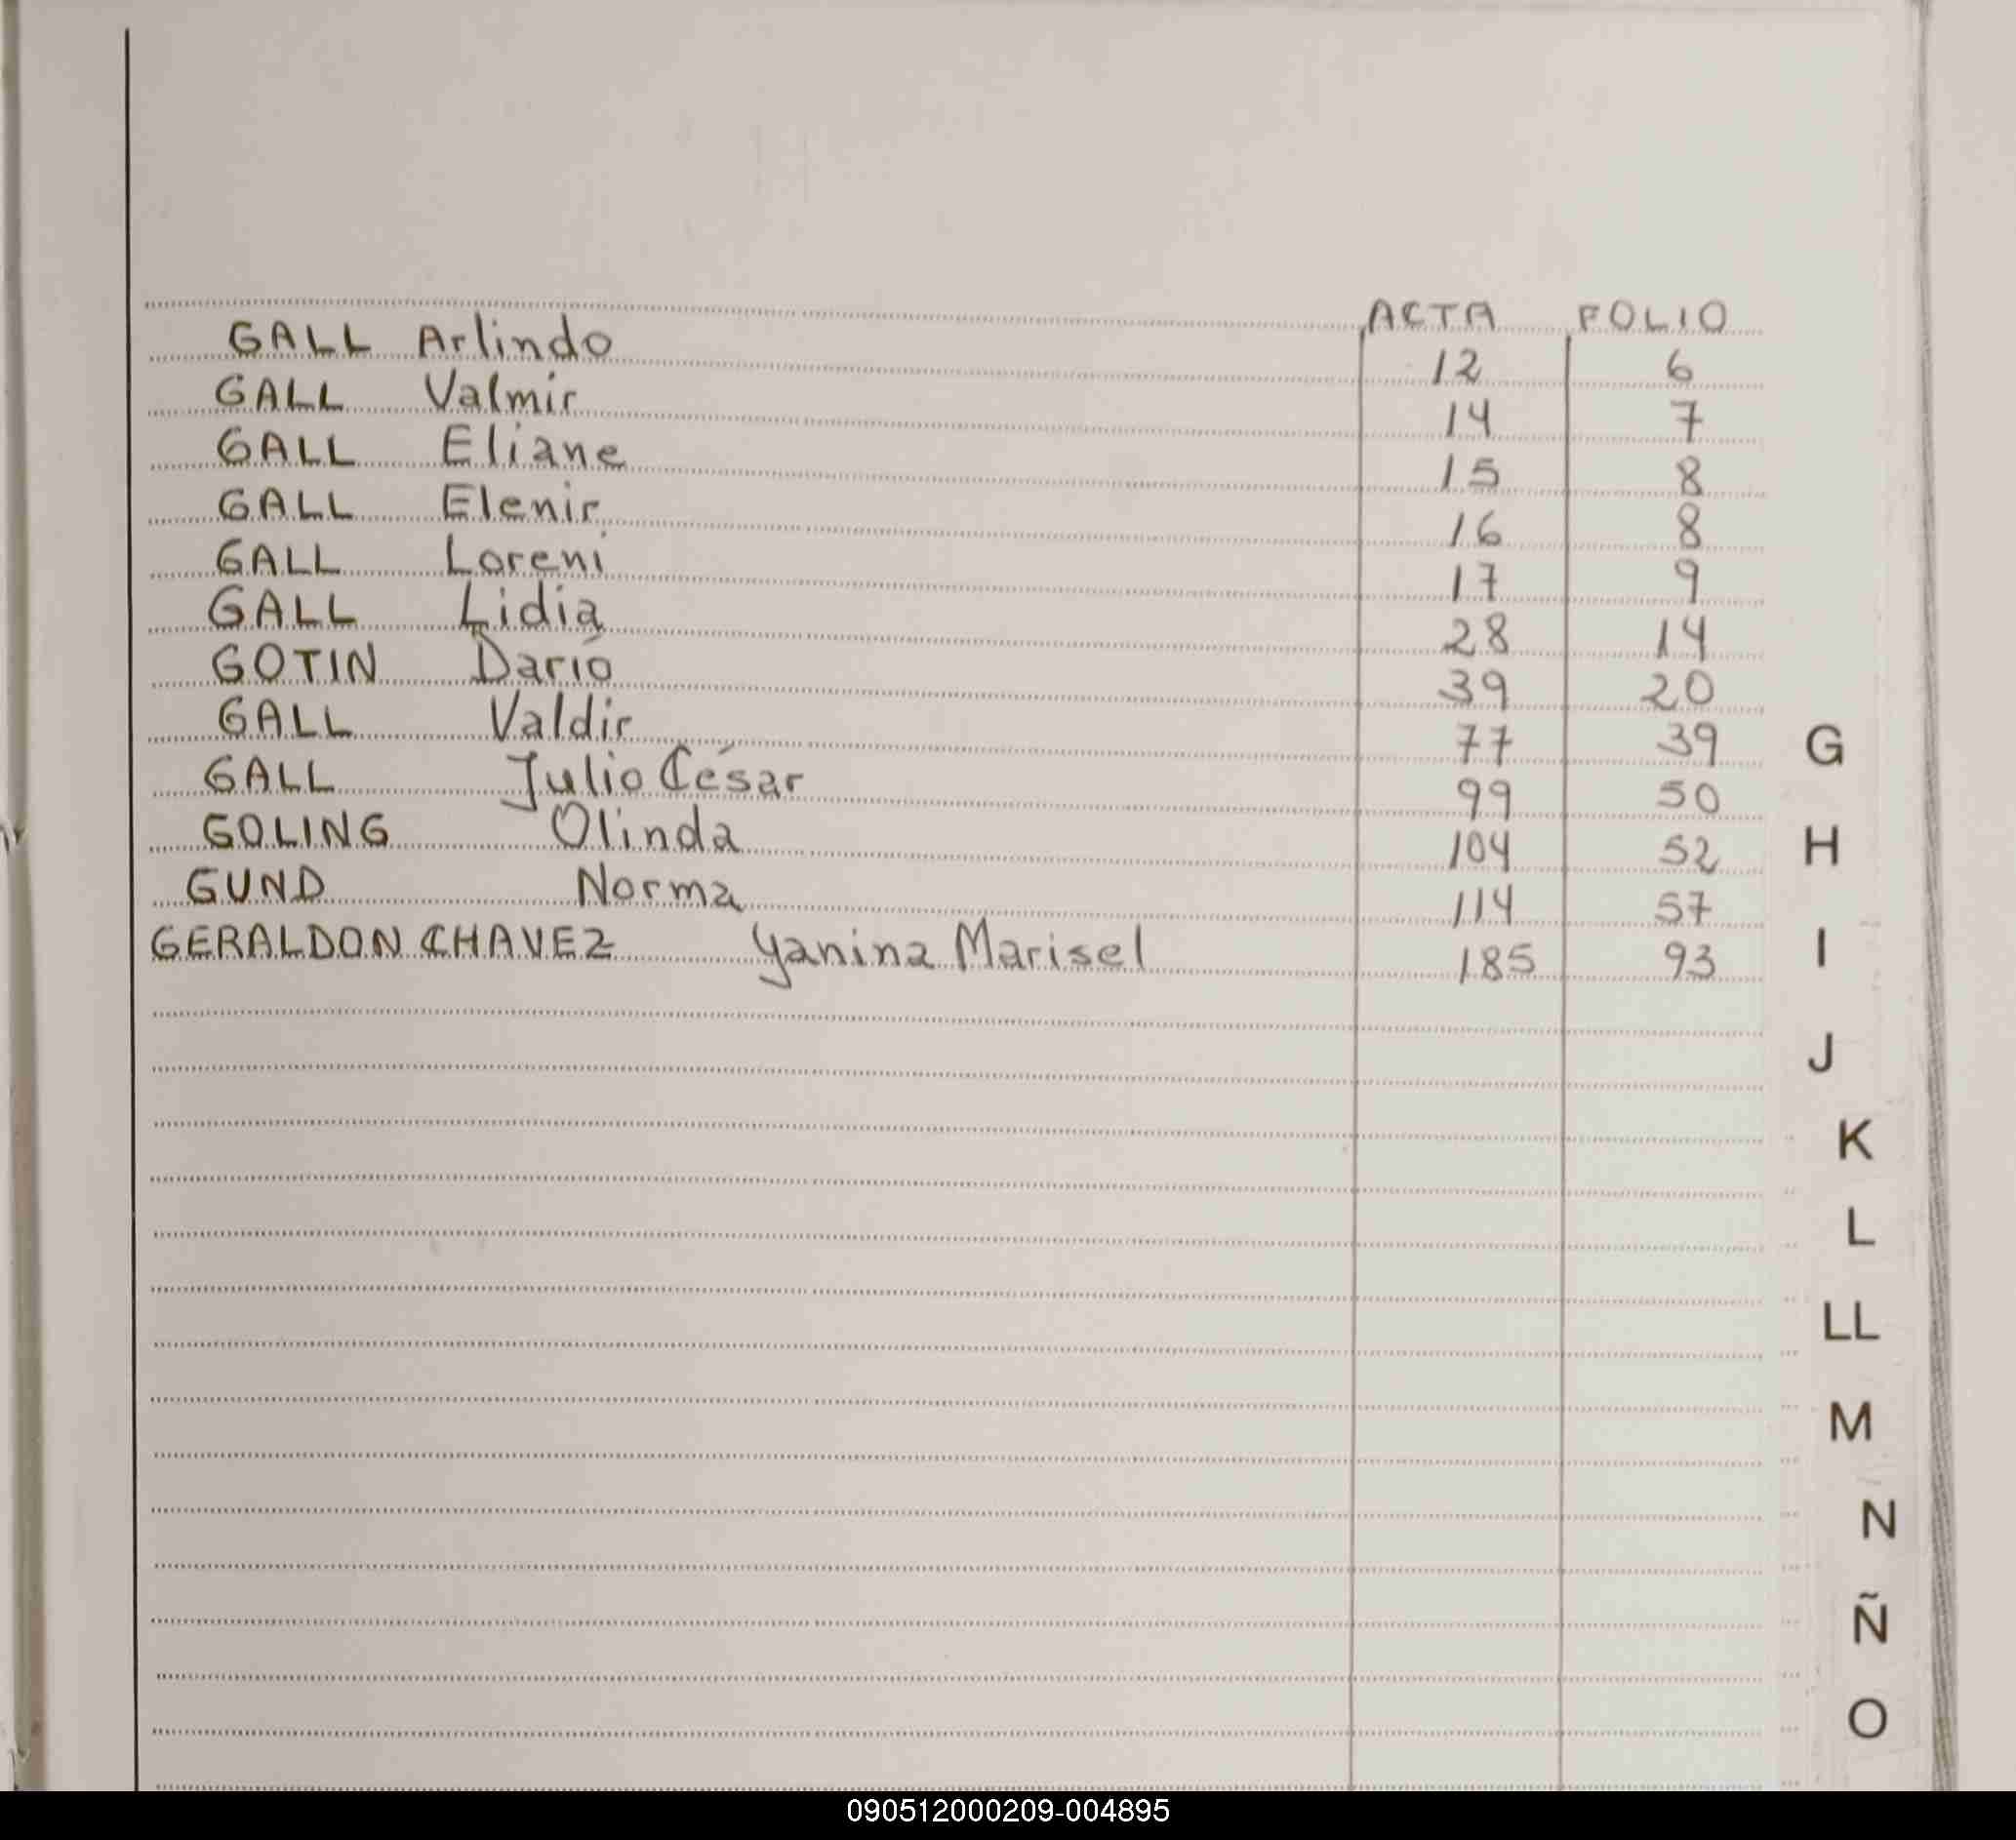 ACTA FOLIO
GALL Arlindo 12 6
GALL Valmir 14 7
GALL Eliane 15 8
GALL Elenir 16 8
GALL Loreni 17 9
GALL Lidia 28 14
GOTIN Darío 39 20
GALL Valdir 77 39
GALL Julio César 99 50
GOLING Olinda 104 52
GUND Norma 114 57
GERALDON CHAVEZ Yanina Marisel 185 93
G
H
I
J
K
L
LL
M
N
Ñ
O
090512000209-004895